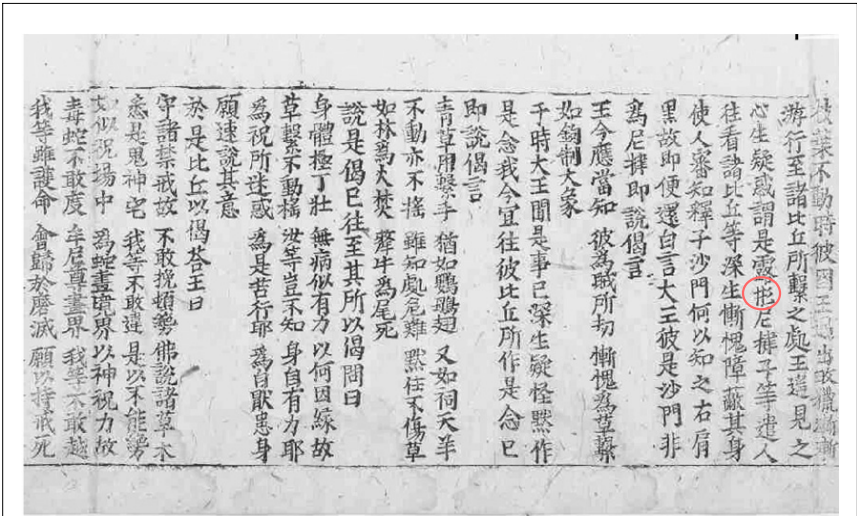 枝葉不動時彼國王遇出畋獵漸漸
游行至諸比丘所繫之處王遥見之
心生疑惑謂是露形尼揵子等遣人
往看諸比丘等深生慚愧障蔽其身
使人審知釋子沙門何以知之右肩
黑故即便還白言大王彼是沙門非
爲尼揵即説偈言
王今應當知 彼爲賊所劫 慚愧爲草繫
如鉤制大象
于時大王聞是事已深生疑怪默作
是念我今宜往彼比丘所作是念已
即説偈言
青草用繫手 猶如鸚鵡翅 又如祠天羊
不動亦不搖 雖知處危難 默住不傷草
如林爲火焚 犛牛爲尾死
説是偈已往至其所以偈問曰
身體極丁壯 無病似有力 以何因緣故
草繫不動搖 汝等豈不知 身自有力耶
爲祝所迷惑 爲是苦行耶 爲自猒患身
願速説其意
於是比丘以偈答王曰
守諸禁戒故 不敢挽頓絶 佛説諸草木
悉是鬼神宅 我等不敢違 是以不能絶
如似祝場中 爲蛇畫境界 以神祝力故
毒蛇不敢度 牟尼尊畫界 我等不敢越
我等雖護命 會歸於磨滅 願以持戒死